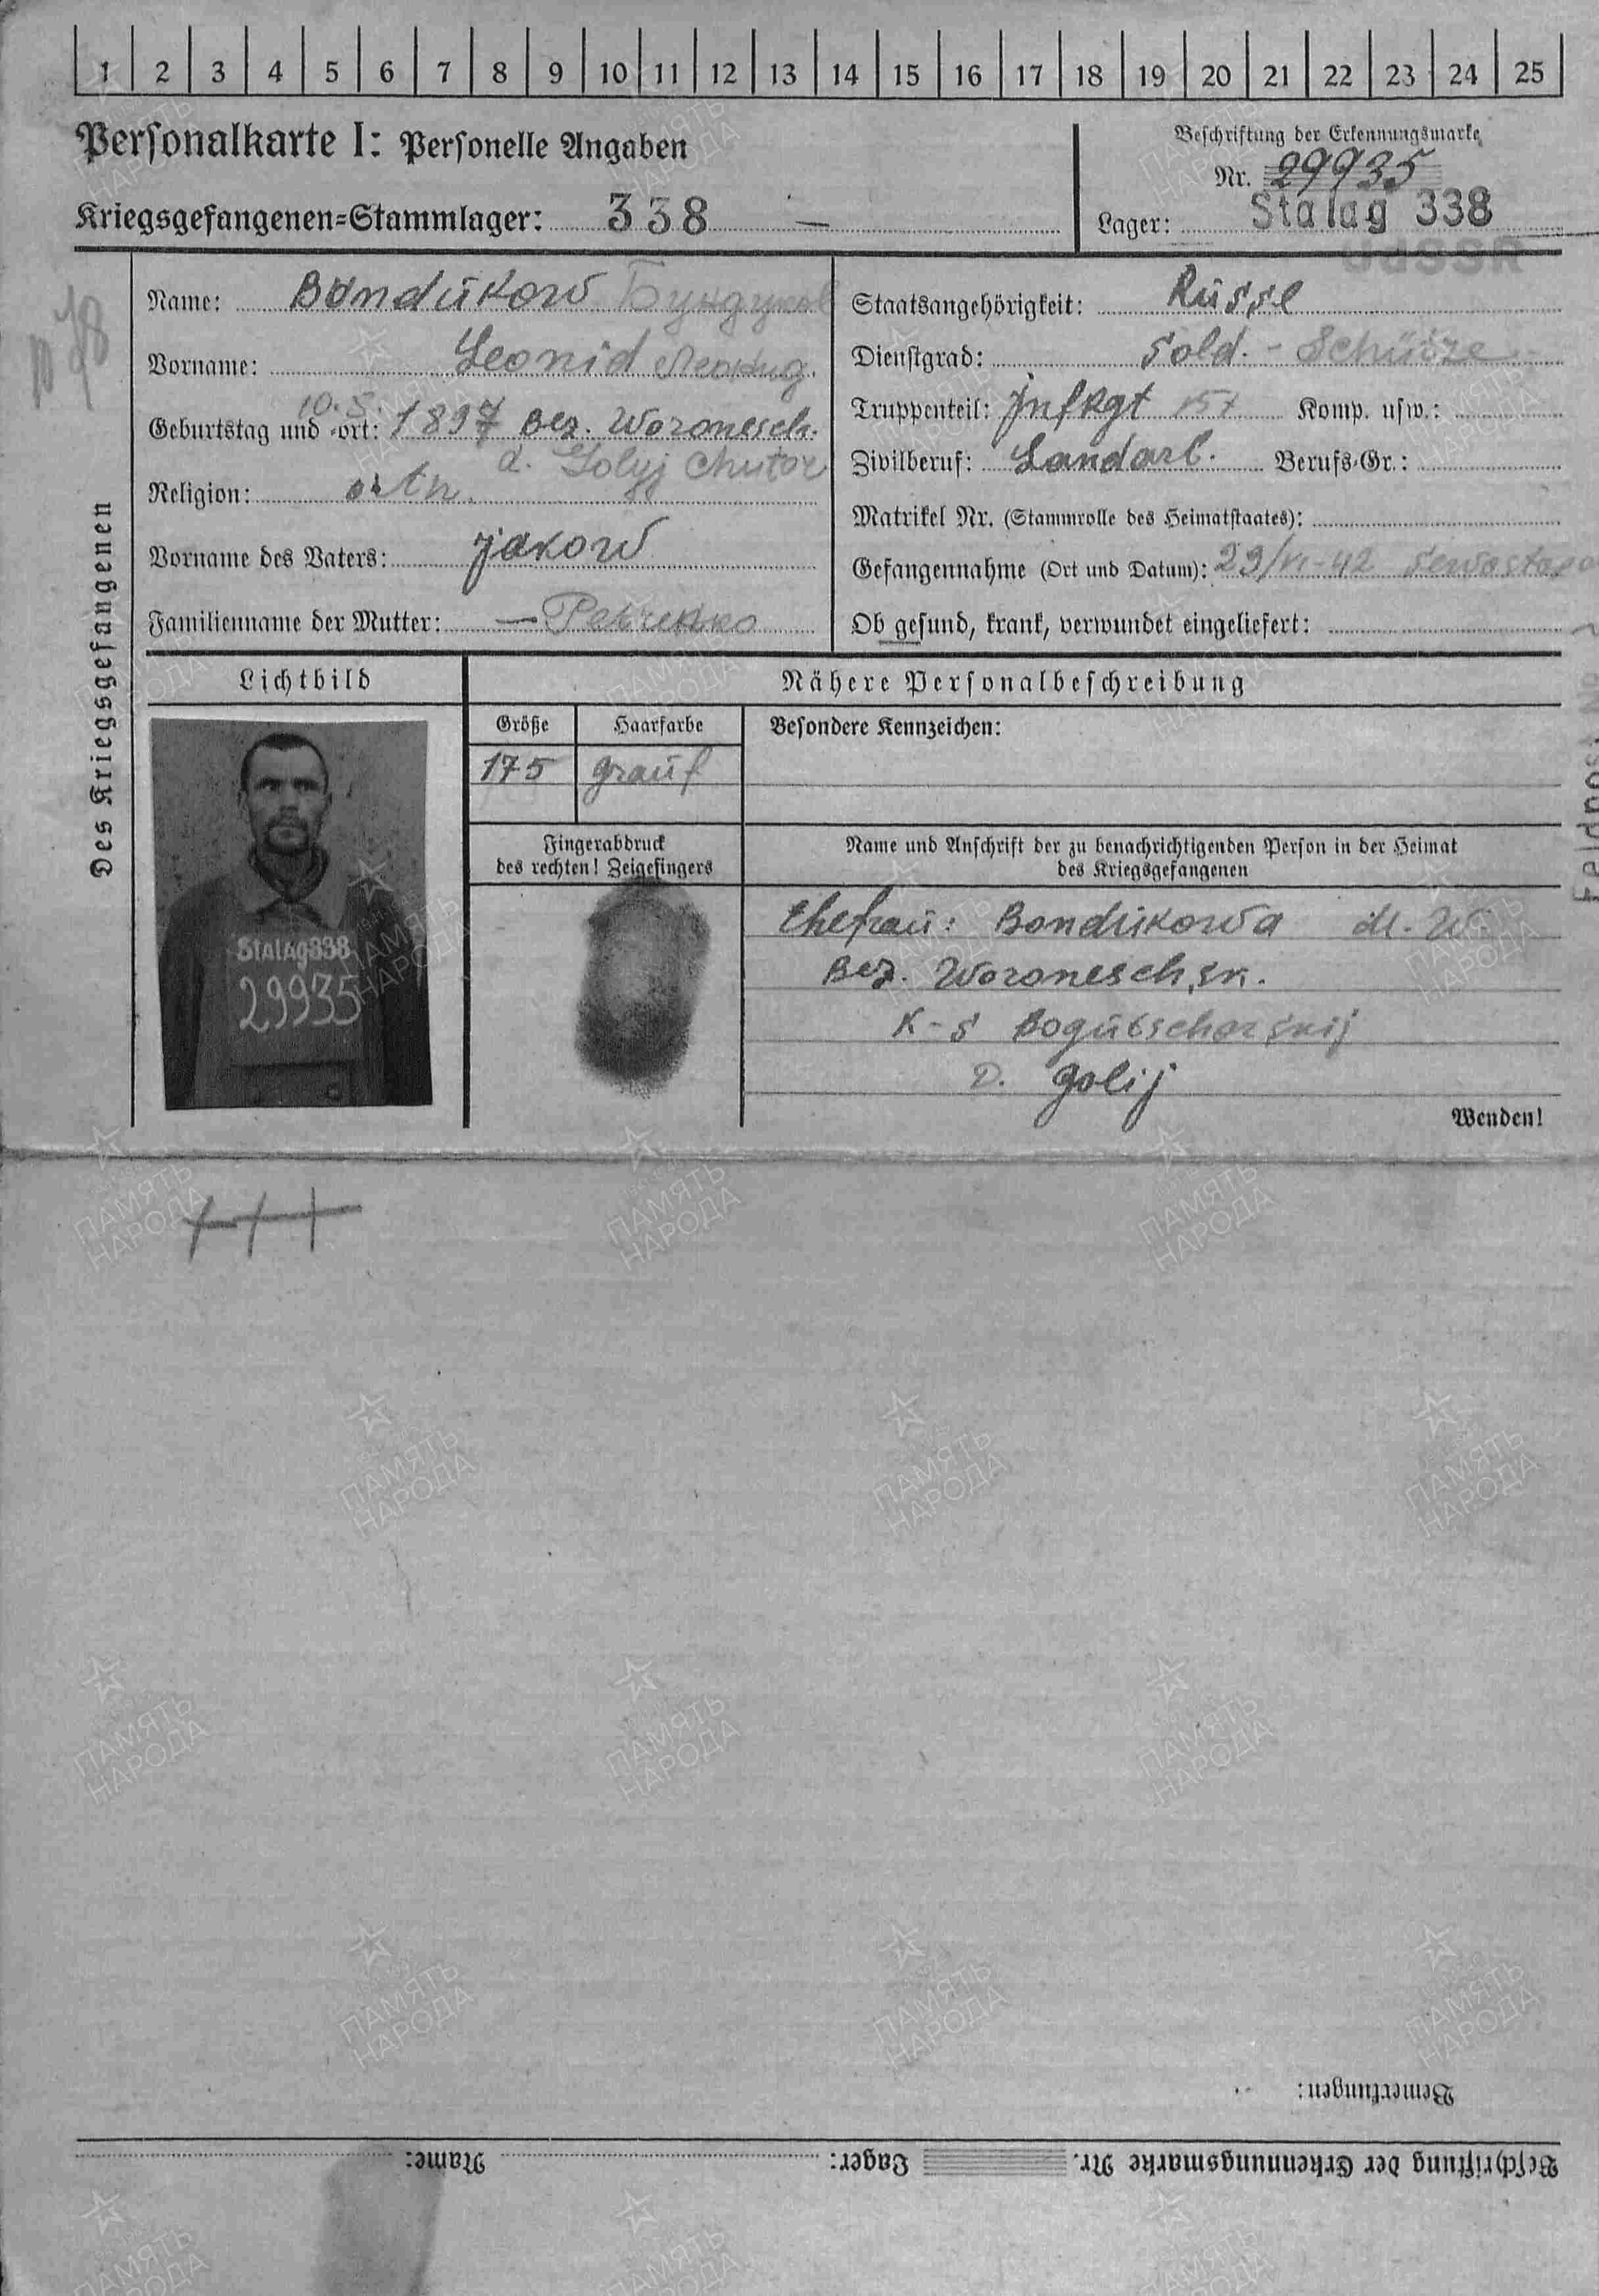 1 2 3 4 5 6 7 8 9 10 11 12 13 14 15 16 17 18 19 20 21 22 23 24 25
Personalkarte I: Personelle Angaben
Kriegsgefangenen-Stammlager: 338
Beschriftung der Erkennungsmarke
Nr. 29935
Lager: Stalag 338
UdSSR
Des Kriegsgefangenen
Name: Bondukow Бундуков
Vorname: Leonid Леонид
10.8.
Geburtstag und -ort: 1897 Bez. Woronesch.
d. Golyj Chutor
Religion: orth.
Vorname des Vaters: Jakow
Familienname der Mutter: — Petrenko
Staatsangehörigkeit: Russe
Dienstgrad: Sold. - Schütze
Truppenteil: Infrgt Komp. usw.:
Zivilberuf: Landarb. Berufs-Gr.:
Matrikel Nr. (Stammrolle des Heimatstaates):
Gefangennahme (Ort und Datum): 29/VI-42 Sewastopo
Ob gesund, krank, verwundet eingeliefert:
Lichtbild
Nähere Personalbeschreibung
Größe Haarfarbe Besondere Kennzeichen:
175
Fingerabdruck
des rechten! Zeigefingers
Stalag 338
29935
Name und Anschrift der zu benachrichtigenden Person in der Heimat
des Kriegsgefangenen
Ehefrau: Bondukowa M. W.
Bez. Woronesch.sk.
K-s Bogutscharskij
D. Golij
Wenden!
Feldpost
+++
Bemerkungen:
Beschriftung der Erkennungsmarke Nr. Lager: Name:
ПАМЯТЬ
НАРОДА